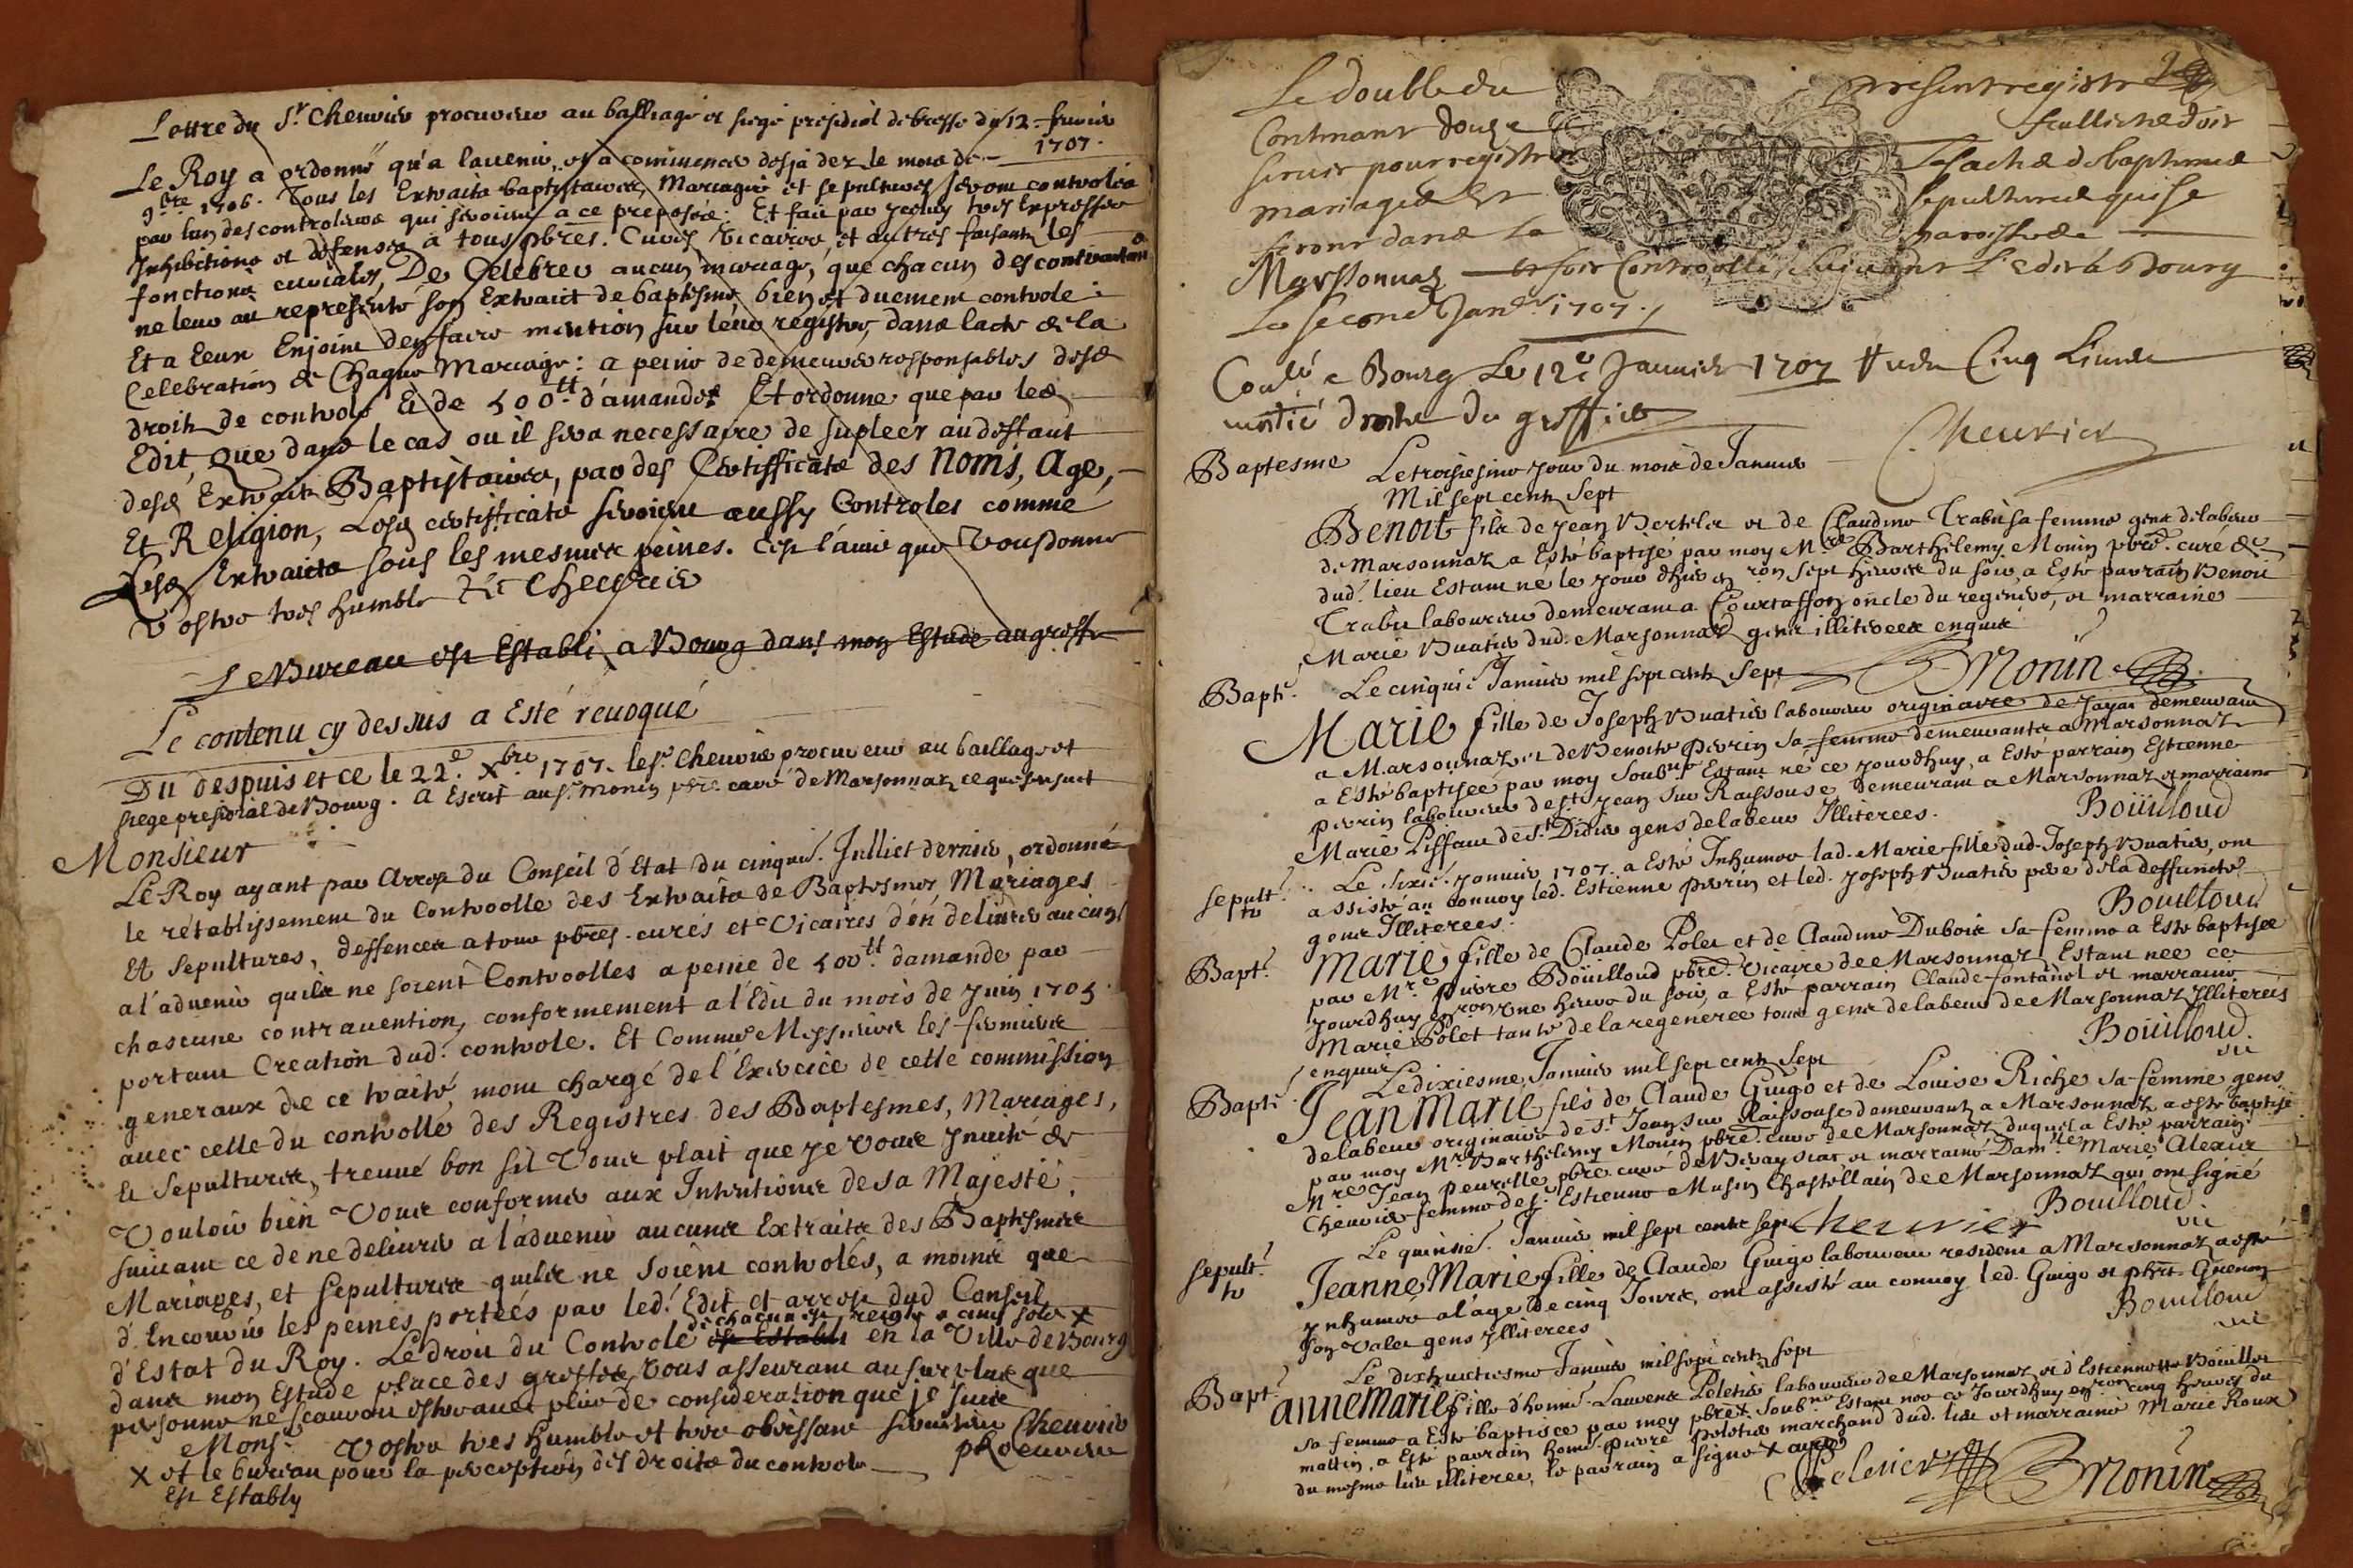 Lettre du Sr. Chevrier procureur au balliage et siege presidial de bresse du 12. fevrier
1707.
Le Roy a ordonné qu'a lavenir, et a commencer desja dez le mois de
9bre 1706. Tous les Extraits baptistaires, Mariages et sepultures seront controlés
par lun des controleurs qui seroient a ce préposés. Et fait par
Inhibitions et défenses à tous pbres. Curés Vicaires, et autres faisants les
fonctions curiales, De Celebrer aucun mariage, que chacun des contractans
ne leur au representé son Extraict de baptesme bien et duement controlé :
Et a Eeux Enjoint den faire mention sur léur registre, dans lacte de la
Celebration de Chaque Mariage : a peine de demeurer responsables desd
droits de controle Et de 500tt. d'amande. Et ordonne que par led
Edit, que dans le cas ou il sera necessaire de supleer au deffaut
desd Extraits Baptistaires, par des Certifficats des Noms, Age,
Et Religion, Lesd certifficats seroient aussy Controles comme
Lesd Extraicts sous les mesmes peines. C'est l'avis que Vous donne
Vostre tres humble Chevrier
Le Bureau est Establi a Bourg dans mon Estude au greffe
Le contenu cy dessus a Esté revoqué
Du despuis et ce le 22e. Xbre. 1707. le Sr. Chevrier procureur au baillage et
siege presidial de Bourg. a Escrit au Sr. Monin pbre. curé de Marsonnaz, ce que sensuit
Monsieur
LE Roy ayant par Arrest du Conseil d'Etat du cinquie. Julliet dernier, ordonné
le rétablissement du Controolle des Extraits de Baptesmes, Mariages
Et Sepultures, deffences a tous pbres. curés et Vicaires d'én delivrer aucuns
a l'advenir quils ne soient Controolles a peine de 500tt. damande par
chascune contravention, conformement a l'Edit du mois de Juin 1705.
portant Creation dud. controle. Et Comme Messieurs les fermiers
generaux de ce traité, mont chargé de l'Exercice de cette commission
avec celle du controlle des Registres des Baptesmes, Mariages,
Et Sepultures, treuvé bon sil Vous plait que je vous Invite de
Vouloir bien Vous conformer aux Intentions de sa Majesté,
suivant ce de ne delivrer a l'advenir aucuns Extraits des Baptesmes
Mariages, et Sepultures quils ne soient controlés, a moins que
d'Encourir les peines portées par led. Edit et arrest dud Conseil
d'Estat du Roy. Le droit du Controle de chacun est reiglé a cinq sols X
est Establi en la Ville de Bourg
dans mon Estude place des greffes, Vous asseurant au surplus que
personne ne scauroit estre avec plus de consideration que je suis
Mons. Vostre tres humble et tres obeissant serviteur Chevrier
procureur
X et le bureau pour la perception des droits du controle
Est Establi
Le double du present registre
Contenant douze feulliets doit
servir pour registrer les actes de baptesmes
mariages Et sepultures qui se
feront dans la parroisse de
Marssonnaz et soir Controollé suivant l'edit a Bourg
Le second Janr. 1707.
a Bourg Le 12e Janvier 1707 Cinq Livres
moitié droits du greffier
Chevrier
Baptesme Le troisiesme jour du mois de Janvier
Mil sept cents Sept
Benoit fils de Jean Bertelet et de Claudine Trabu sa femme gens de labeur
de Marsonnaz a Esté baptisé par moy Mre Barthelemy Monin pbre. curé de
dud. lieu Estant né le jour dhier en ron sept heures du soir, a Esté parrain Benoit
Trabu laboureur demeurant a Courtaffon oncle du regeneré, et marraine
Marie Buatier dud. Marsonnaz gens illiterees enquis
Monin
Bapt. Le cinquie. Janvier mil sept cents Sept
Marie fille de Joseph Buatier laboureur originaire de Jayat demeurant
a Marsonnaz et de Benoite Perrin sa femme demeurante a Marsonnaz
a Esté baptisée par moy soubne. Estant né ce jourdhuy, a Esté parrain Estienne
perrin laboureur de St. Jean sur Raissouse demeurant a Marsonnaz et marraine
Marie Piffaut de St. Didier gens de labeur Illiterees.
Boüilloud
sepultre Le sixie. Janvier 1707. a Esté Inhumee lad. Marie fille dud. Joseph Buatier, ont
assisté au convoy led. Estienne Perrin et led. Joseph Buatier pere de la deffuncte
gens Illiterees.
Bouilloud
Bapt. Marie fille de Claude Polet et de Claudine Dubois sa femme a Esté baptisee
par Mre. pierre Boüilloud pbre. Vicaire de Marsonnaz Estant nee ce
jourdhuy en ron Une heure du soir, a Esté parrain Claude fontanel et marraine
Marie Polet tante de la regeneree tous gens de labeur de Marsonnaz Illiterees
enquis
Boüilloud.
vic
Bapt. Le dixiesme Janvier mil sept cents Sept
Jean Marie fils de Claude Guigo et de Louise Riche sa femme gens
de labeur originaires de St. Jean sur Raissouse demeurants a Marsonnaz a esté baptisé
par moy Mre Barthelemy Monin pbre. curé de Marsonnaz duquel a Esté parrain
Mre Jean Peurelle pbre curé de et marraine Damlle Marie
Chevrier femme de Sr. Estienne Musin Chastellain de Marsonnaz qui ont signé
Bouilloud
vic
Chevrier
sepultre Le quinsie. Janvier mil sept cents sept
Jeanne Marie fille de Claude Guigo laboureur resident a Marsonnaz a esté
Inhumée a l'age de cinq Jours, ont assisté au convoy led. Guigo et phrt.
son valet gens Illiterees
Bouilloud
vic
Bapt. Le dixhuictiesme Janvier mil sept cents sept
anne marie fille d'honne. Laurens Peletier laboureur de Marsonnaz et d'Estiennette Bouillet
sa femme a Esté baptisee par moy pbre soubne Estant nee ce jourdhuy en ron cinq heures du
mattin, a Esté parrain honne. pierre peletier marchand dud. lieu et marraine Marie Roux
du mesme lieu illiteree, le parrain a signé X
Peletier
Monin